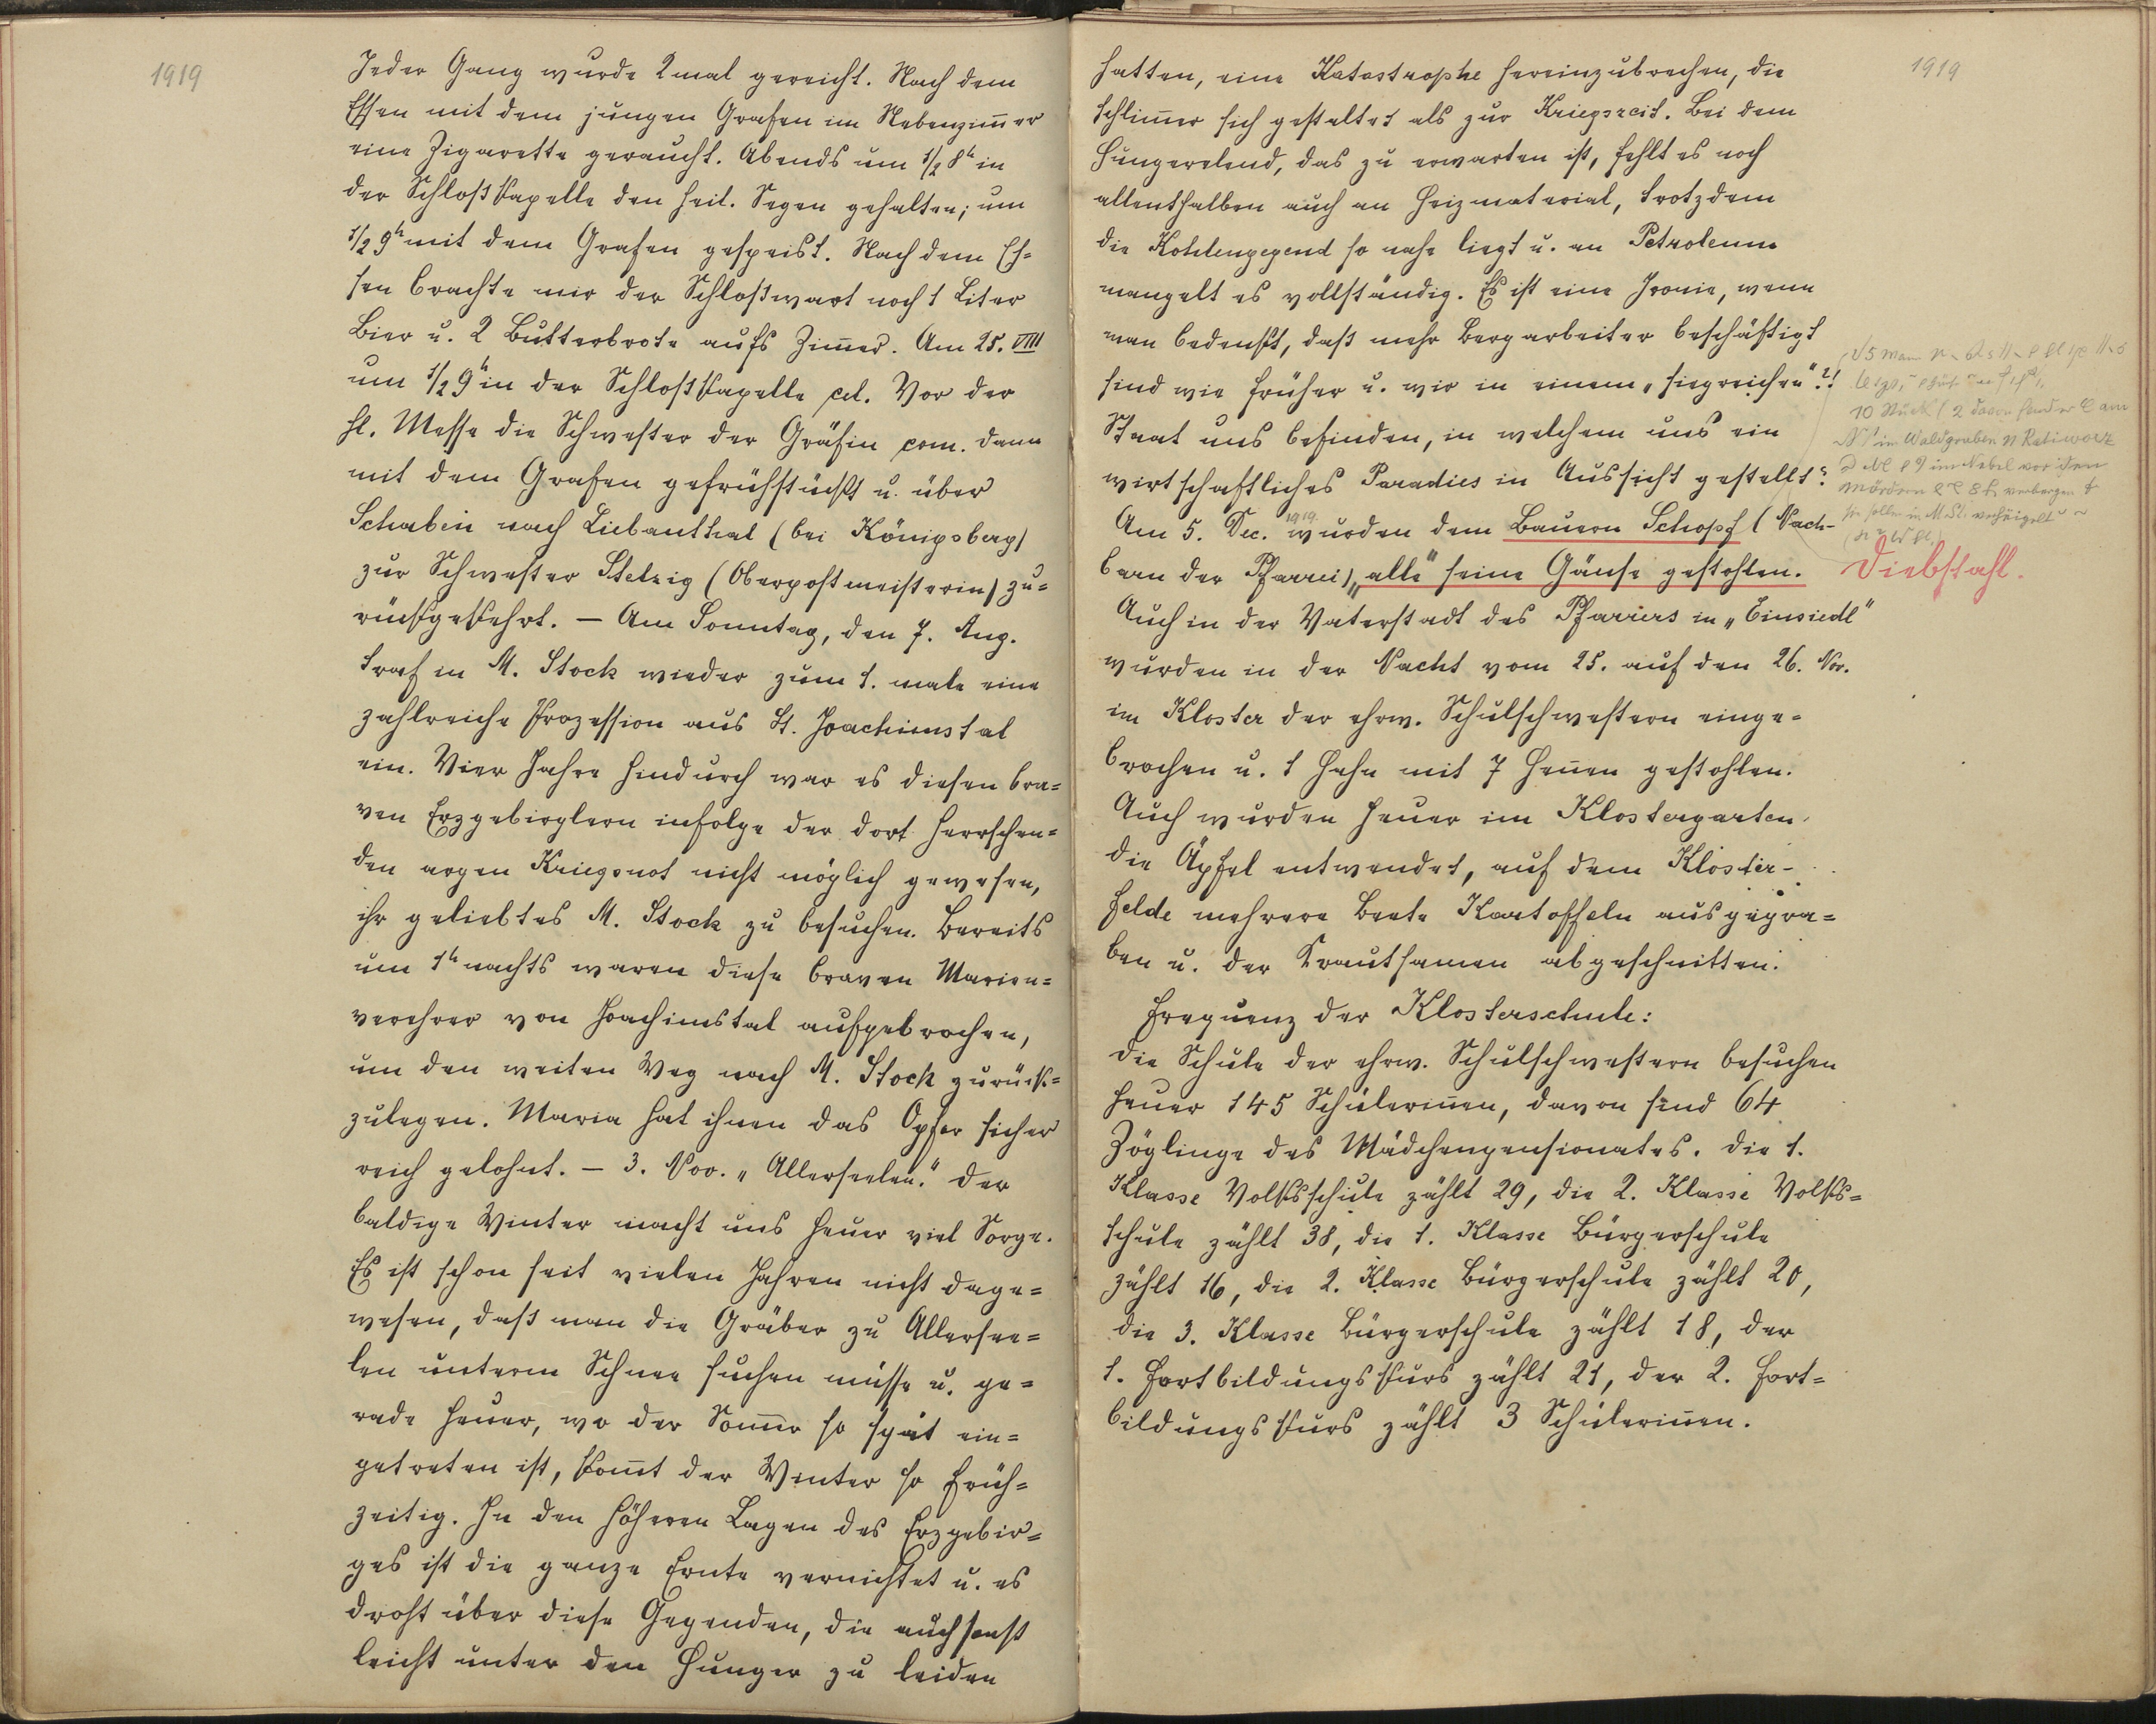 1919
Jeder Gang wurde 2mal gereicht. Nach dem
Essen mit dem jungen Grafen im Nebenzim̅er
eine Zigarette geraucht. Abends um 1/2 8ʰ in
der Schloßkapelle den heil. Segen gehalten; um
1/2 9ʰ mit dem Grafen gespeist. Nach dem Es=
sen brachte mir der Schloßwart noch 1 Liter
Bier u. 2 Butterbrote aufs Zim̅er. Am 25. VIII
um 1/2 9ʰ in der Schloßkapelle cel. Vor der
hl. Messe die Schwester der Gräfin com. dann
mit dem Grafen gefrühstückt u. über
Schaben nach Liebanthal (bei Königsberg)
zur Schwester Stelzig (Oberpostmeisterin) zu=
rückgekehrt. – Am Sonntag, den 7. Aug.
traf in M. Stock wieder zum 1. male eine
zahlreiche Prozession aus St. Joachimstal
ein. Vier Jahre hindurch war es diesen bra=
ven Erzgebirglern infolge der dort herrschen=
den argen Kriegsnot nicht möglich gewesen,
ihr geliebtes M. Stock zu besuchen. Bereits
um 1ʰ nachts waren diese braven Marien=
verehrer von Joachimstal aufgebrochen,
um den weiten Weg nach M. Stock zurück=
zulegen. Maria hat ihnen das Opfer sicher
reich gelohnt. – 3. Nov. „Allerseelen." Der
baldige Winter macht uns heuer viel Sorge.
Es ist schon seit vielen Jahren nicht dage=
wesen, daß man die Gräber zu Allersee=
len unterm Schnee suchen müsse u. ge=
rade heuer, wo der Som̅er so spät ein=
getreten ist, kom̅t der Winter so früh=
zeitig. In den höheren Lagen des Erzgebir=
ges ist die ganze Ernte vernichtet u. es
droht über diese Gegenden, die auch sonst
leicht unter den Hunger zu leiden
1919
hatten, eine Katastrophe hereinzubrechen, die
schlim̅er sich gestaltet als zur Kriegszeit. Bei dem
Hungerelend, das zu erwarten ist, fehlt es noch
allenthalben auch an Heizmaterial, trotzdem
die Kohlengegend so nahe liegt u. an Petroleum
mangelt es vollständig. Es ist eine Ironie, wenn
man bedenkt, daß mehr Bergarbeiter beschäftigt
sind wie früher u. wir in einem „siegreichen"?!
Staat uns befinden, in welchem uns ein
wirtschaftliches Paradies in Aussicht gestellt?
Am 5. Dec. 1919. wurden dem Bauern Schopf (Nach-
barn der Pfarrei) „alle" seine Gänse gestohlen.
10 Stück (2 davon fand er am
im Waldgraben
im Nebel vor den
Mördern verbergen
Diebstahl.
Auch in der Vaterstadt des Pfarrers in „Einsiedl"
wurden in der Nacht vom 25. auf den 26. Nov.
im Kloster der ehrw. Schulschwestern einge=
brochen u. 1 Hahn mit 7 Hen̅en gestohlen.
Auch wurden heuer im Klostergarten
die Äpfel entwendet, auf dem Kloster-
felde mehrere Beete Kartoffeln ausgegra=
ben u. der Krautsamen abgeschnitten.
Frequenz der Klosterschule:
Die Schule der ehrw. Schulschwestern besuchen
heuer 145 Schülerin̅en, davon sind 64
Zöglinge des Mädchenpensionates. Die 1.
Klasse Volksschule zählt 29, die 2. Klasse Volks=
schule zählt 38, die 1. Klasse Bürgerschule
zählt 16, die 2. Klasse Bürgerschule zählt 20,
die 3. Klasse Bürgerschule zählt 18, der
1. Fortbildungskurs zählt 21, der 2. Fort=
bildungskurs zählt 3 Schülerin̅en.